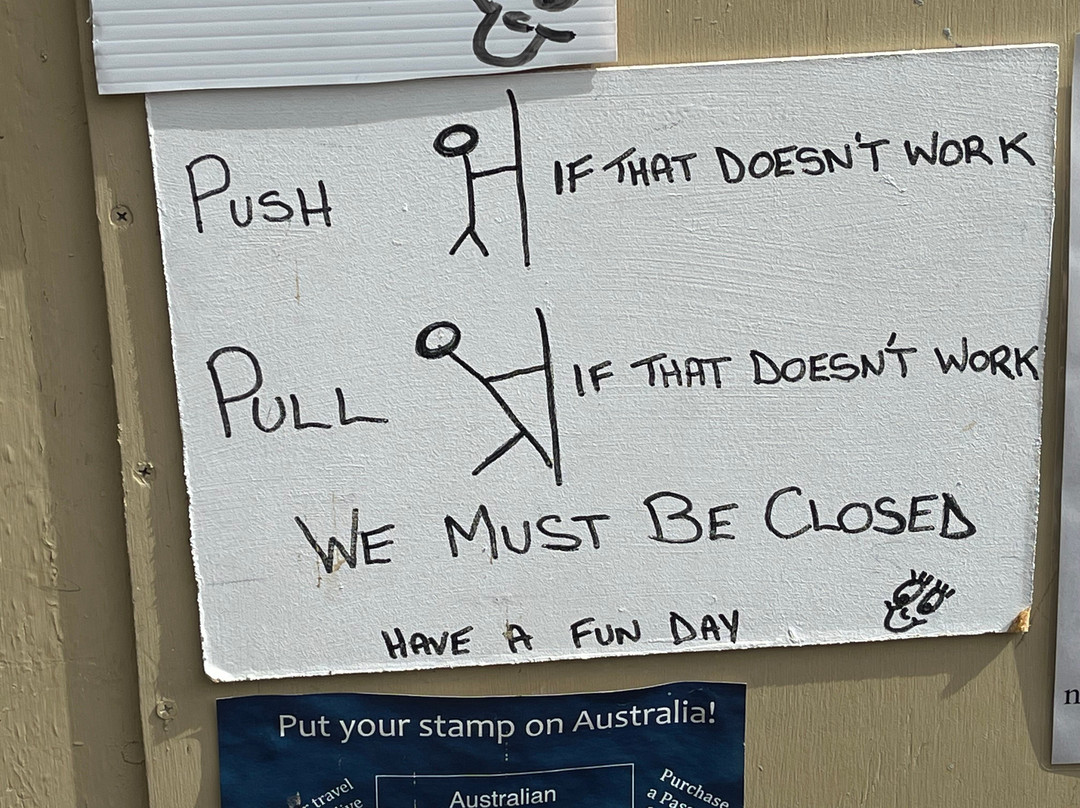 PUSH IF THAT DOESN'T WORK
PULL IF THAT DOESN'T WORK
WE MUST BE CLOSED
HAVE A FUN DAY
Put your stamp on Australia!
travel
Australian
Purchase
a Pass
n